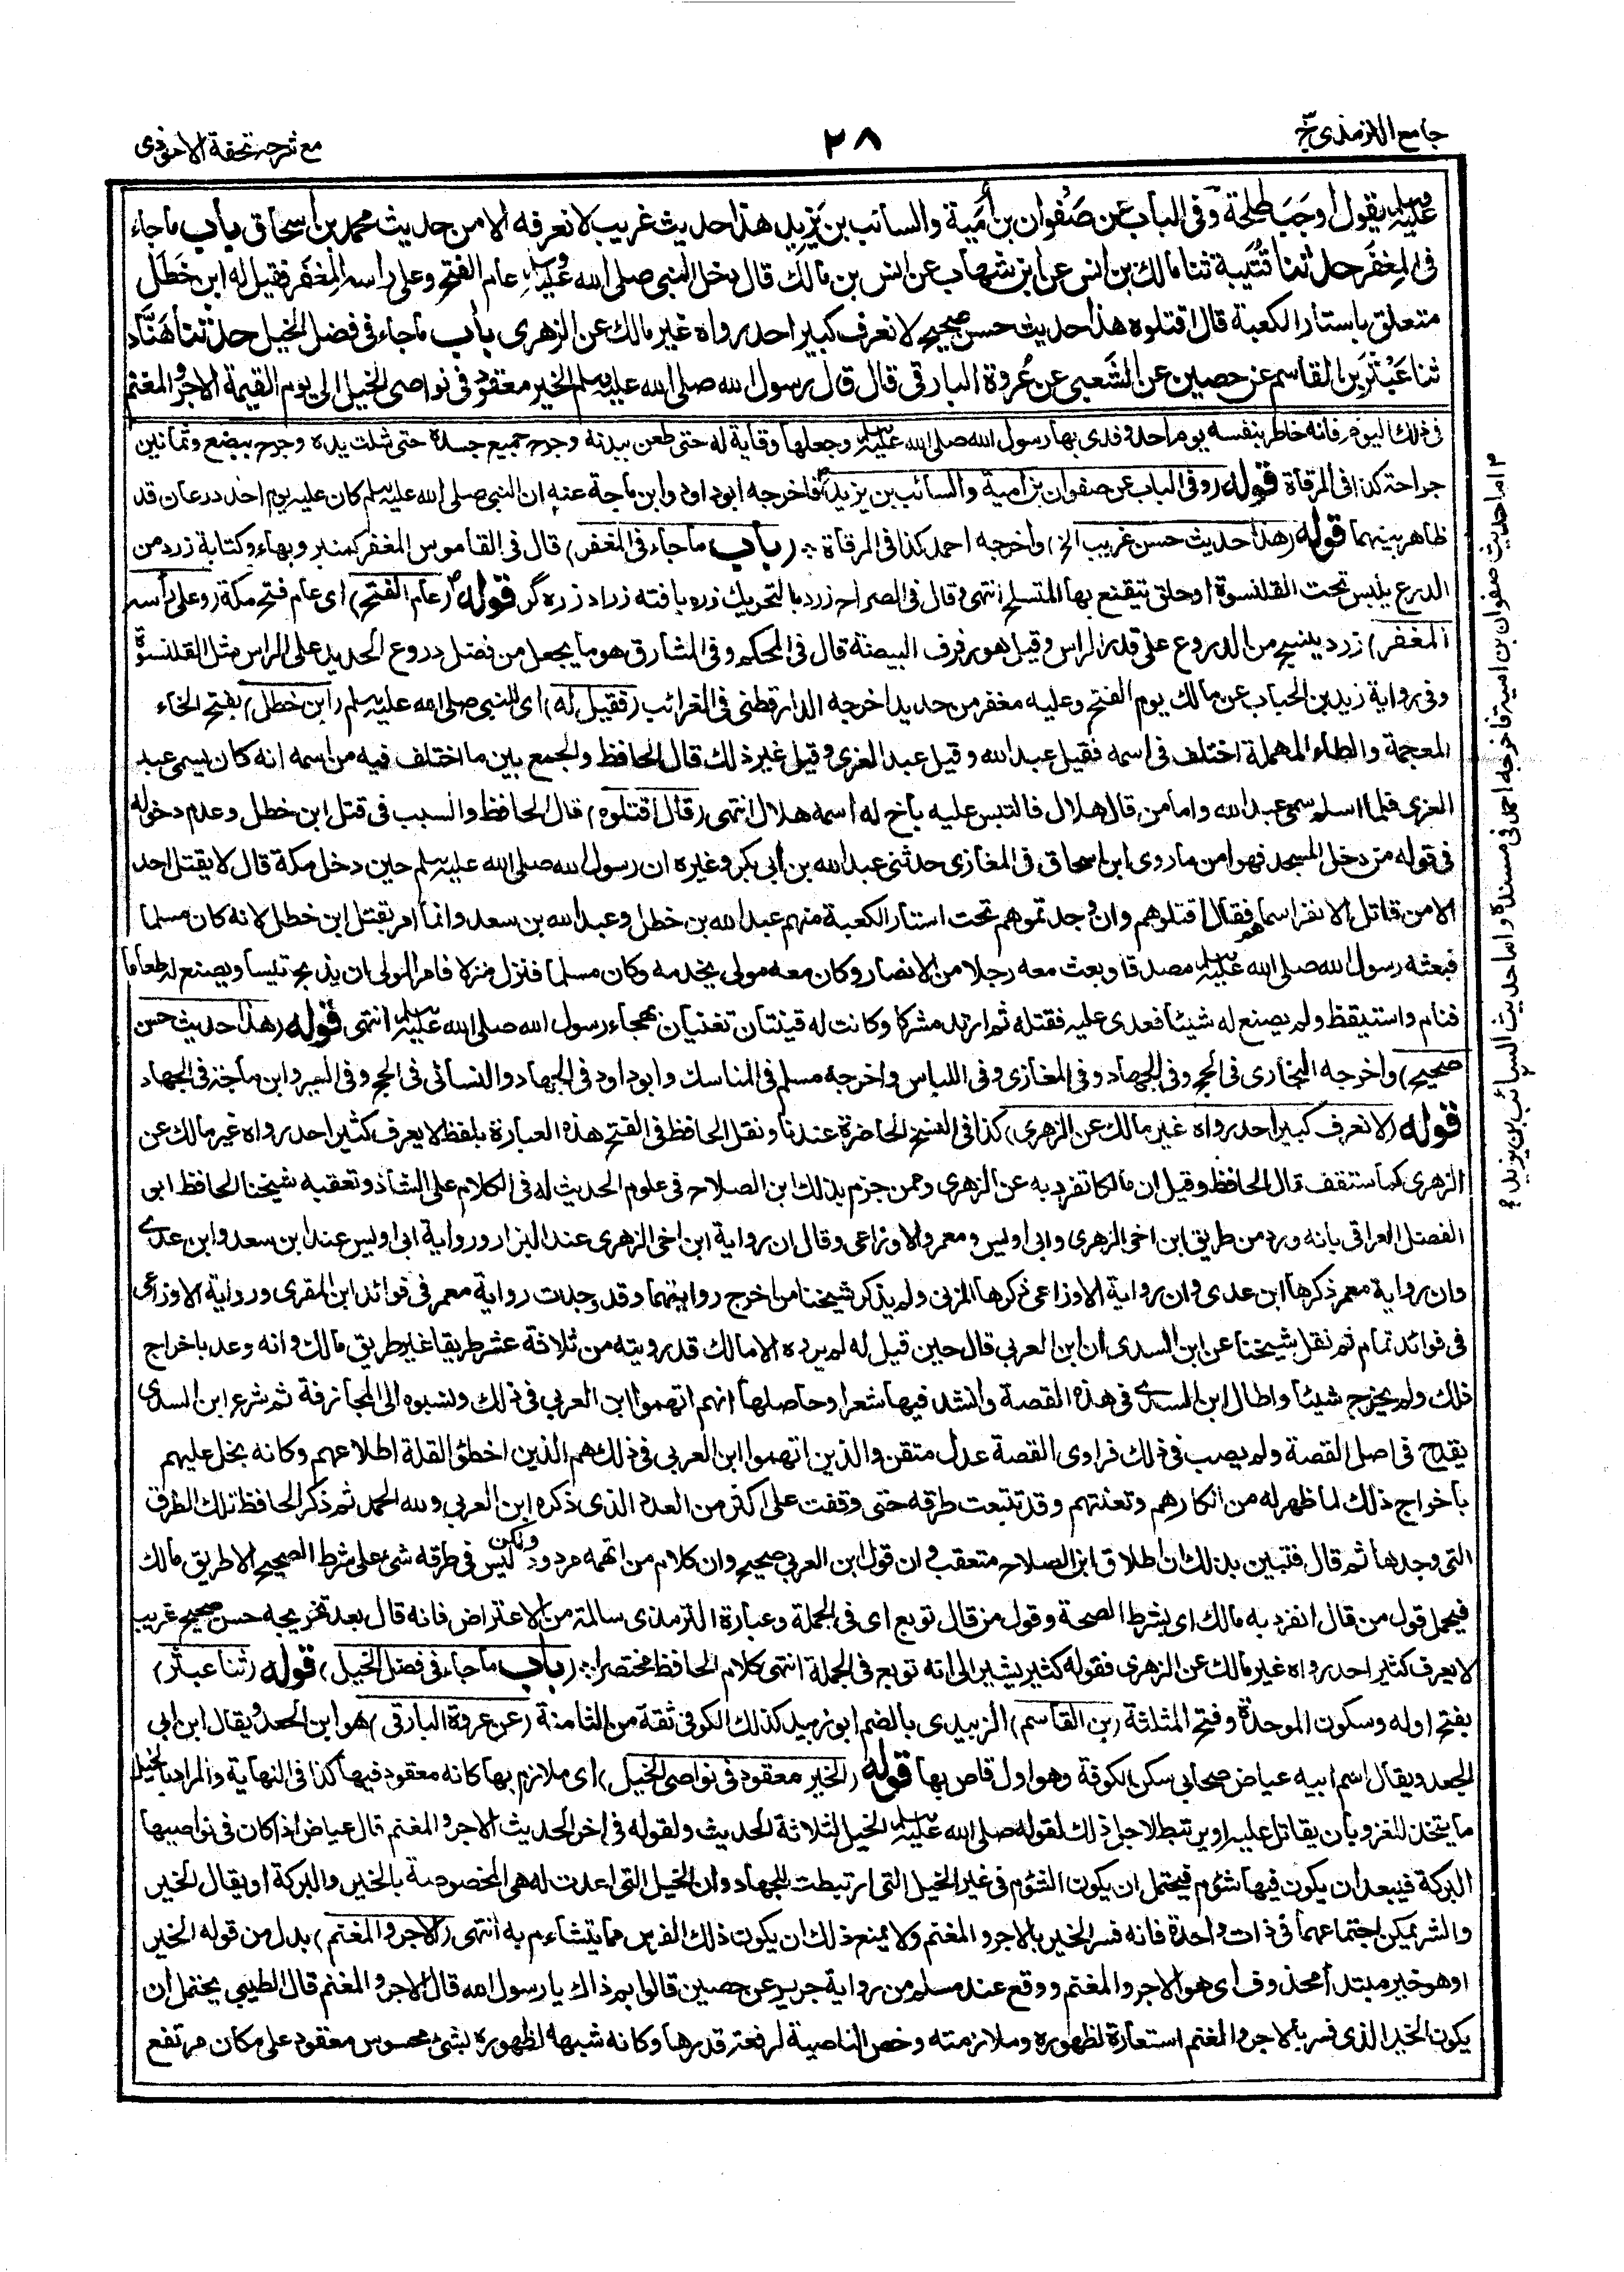 جامع الترمذي ج
٢٨
مع شرحه تحفة الاحوذي
عليه وسلم يقول اوجب طلحة وفي الباب عن صفوان بن أمية والسائب بن يزيد هذا حديث غريب لا نعرفه الا من حديث محمد بن اسحاق باب ما جاء
في المغفر حدثنا قتيبة ثنا مالك بن انس عن ابن شهاب عن انس بن مالك قال دخل النبي صلى الله عليه وسلم عام الفتح وعلى راسه المغفر فقيل له ابن خطل
متعلق باستار الكعبة قال اقتلوه هذا حديث حسن صحيح لا نعرف كبير احد رواه غير مالك عن الزهري باب ما جاء في فضل الخيل حدثنا هناد
ثنا عبثر بن القاسم عن حصين عن الشعبي عن عروة البارقي قال قال رسول الله صلى الله عليه وسلم الخير معقود في نواصي الخيل الى يوم القيمة الاجر والمغنم
في ذلك اليوم فانه خاطر بنفسه يوم احد وفدى بها رسول الله صلى الله عليه وسلم وجعلها وقاية له حتى طعن ببدنه وجرح جميع جسده حتى شلت يده وجرح ببضع وثمانين
جراحة كذا في المرقاة قوله (وفي الباب عن صفوان بن امية والسائب بن يزيد) فاخرجه ابو داود وابن ماجة عنه ان النبي صلى الله عليه وسلم كان عليه يوم احد درعان قد
ظاهر بينهما قوله (هذا حديث حسن غريب الخ) واخرجه احمد كذا في المرقاة ؞ (باب ما جاء في المغفر) قال في القاموس المغفر كمنبر وبهاء وكتابة زرد من
الدرع يلبس تحت القلنسوة او حلق يتقنع بها المتسلح انتهى وقال في الصراح زرد بالتحريك زره بافته زراد زره گر قوله (عام الفتح) اى عام فتح مكة (وعلى رأسه
المغفر) زرد ينسج من الدروع على قدر الراس وقيل هو رفرف البيضة قال في المحكم وفي المشارق هو ما يجعل من فضل دروع الحديد على الراس مثل القلنسوة
وفي رواية زيد بن الحباب عن مالك يوم الفتح وعليه مغفر من حديد اخرجه الدارقطني في الغرائب (فقيل له) اى للنبي صلى الله عليه وسلم (ابن خطل) بفتح الخاء
المعجمة والطاء المهملة اختلف في اسمه فقيل عبد الله وقيل عبد العزى وقيل غير ذلك قال الحافظ والجمع بين ما اختلف فيه من اسمه انه كان يسمى عبد
العزى فلما اسلم سمى عبد الله واما من قال هلال فالتبس عليه باخ له اسمه هلال انتهى (قال اقتلوه) قال الحافظ والسبب في قتل ابن خطل وعدم دخوله
في قوله من دخل المسجد فهو امن ما روى ابن اسحاق في المغازي حدثني عبد الله بن ابي بكر وغيره ان رسول الله صلى الله عليه وسلم حين دخل مكة قال لا يقتل احد
الا من قاتل الا نفرا سماهم فقال اقتلوهم وان وجدتموهم تحت استار الكعبة منهم عبد الله بن خطل وعبد الله بن سعد وانما امر بقتل ابن خطل لانه كان مسلما
فبعثه رسول الله صلى الله عليه وسلم مصدقا وبعث معه رجلا من الانصار وكان معه مولى يخدمه وكان مسلما فنزل منزلا فامر المولى ان يذبح تيسا ويصنع له طعاما
فنام واستيقظ ولم يصنع له شيئا فعدى عليه فقتله ثم ارتد مشركا وكانت له قينتان تغنيان بهجاء رسول الله صلى الله عليه وسلم انتهى قوله (هذا حديث حسن
صحيح) واخرجه البخاري في الحج وفي الجهاد وفي المغازي وفي اللباس واخرجه مسلم في المناسك وابو داود في الجهاد والنسائي في الحج وفي السير وابن ماجة في الجهاد
قوله (لا نعرف كبير احد رواه غير مالك عن الزهري) كذا في النسخ الحاضرة عندنا ونقل الحافظ في الفتح هذه العبارة بلفظ لا يعرف كثير احد رواه غير مالك عن
الزهري كما ستقف قال الحافظ وقيل ان مالكا تفرد به عن الزهري وممن جزم بذلك ابن الصلاح في علوم الحديث له في الكلام على الشاذ وتعقبه شيخنا الحافظ ابي
الفضل العراقي بانه ورد من طريق ابن اخي الزهري وابي اويس ومعمر والاوزاعي وقال ان رواية ابن اخي الزهري عند البزار ورواية ابي اويس عند ابن سعد وابن عدي
وان رواية معمر ذكرها ابن عدي وان رواية الاوزاعي ذكرها المزني ولم يذكر شيخنا من اخرج روايتهما وقد وجدت رواية معمر في فوائد ابن المقري ورواية الاوزاعي
في فوائد تمام ثم نقل شيخنا عن ابن السدي ان ابن العربي قال حين قيل له لم يروه الا مالك قد رويته من ثلاثة عشر طريقا غير طريق مالك وانه وعد باخراج
ذلك ولم يخرج شيئا واطال ابن المسدي في هذه القصة وانشد فيها شعرا وحاصلها انهم اتهموا ابن العربي في ذلك ونسبوه الى المجازفة ثم شرع ابن السدي
يقدح في اصل القصة ولم يصب في ذلك فراوي القصة عدل متقن والذين اتهموا ابن العربي في ذلك هم الذين اخطؤ القلة اطلاعهم وكانه بخل عليهم
باخراج ذلك لما ظهر له من انكارهم وتعنتهم وقد تتبعت طرقه حتى وقفت على اكثر من العدد الذي ذكره ابن العربي ولله الحمد ثم ذكر الحافظ تلك الطرق
التي وجدها ثم قال فتبين بذلك ان اطلاق ابن الصلاح متعقب وان قول ابن العربي صحيح وان كلام من اتهمه مردود ولكن ليس في طرقه شئ على شرط الصحيح الا طريق مالك
فيحمل قول من قال انفرد به مالك اى بشرط الصحة وقول من قال توبع اى في الجملة وعبارة الترمذي سالمة من الاعتراض فانه قال بعد تخريجه حسن صحيح غريب
لا يعرف كثير احد رواه غير مالك عن الزهري فقوله كثير يشير الى انه توبع في الجملة انتهى كلام الحافظ مختصرا ؞ (باب ما جاء في فضل الخيل) قوله (ثنا عبثر)
بفتح اوله وسكون الموحدة وفتح المثلثة (بن القاسم) الزبيدي بالضم ابو زبيد كذلك الكوفي ثقة من الثامنة (عن عروة البارقي) هو ابن الجعد ويقال ابن ابي
الجعد ويقال اسم ابيه عياض صحابي سكن الكوفة وهو اول قاض بها قوله (الخير معقود في نواصي الخيل) اى ملازم بها كانه معقود فيها كذا في النهاية والمراد بالخيل
ما يتخذ للغزو بان يقاتل عليه او يرتبط لاجل ذلك لقوله صلى الله عليه وسلم الخيل لثلاثة الحديث ولقوله في اخر الحديث الاجر والمغنم قال عياض اذا كان في نواصيها
البركة فيبعد ان يكون فيها شؤم فيحتمل ان يكون الشؤم في غير الخيل التي ارتبطت للجهاد وان الخيل التي اعدت له هي المخصوصة بالخير والبركة او يقال الخير
والشر يمكن اجتماعهما في ذات واحدة فانه فسر الخير بالاجر والمغنم ولا يمنع ذلك ان يكون ذلك الفرس مما يتشاءم به انتهى (الاجر والمغنم) بدل من قوله الخير
او هو خبر مبتدأ محذوف اى هو الاجر والمغنم ووقع عند مسلم من رواية جرير عن حصين قالوا بم ذاك يا رسول الله قال الاجر والمغنم قال الطيبي يحتمل ان
يكون الخير الذي فسر بالاجر والمغنم استعارة لظهوره وملازمته وخص الناصية لرفعة قدرها وكانه شبهه لظهوره بشئ محسوس معقود على مكان مرتفع
اما حديث صفوان بن امية فاخرجه احمد في مسنده واما حديث السائب بن يزيد